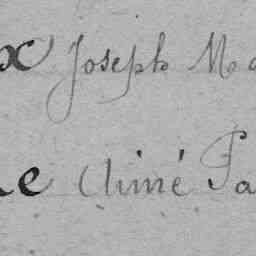 x Joseph Ma
e Aimé Pa